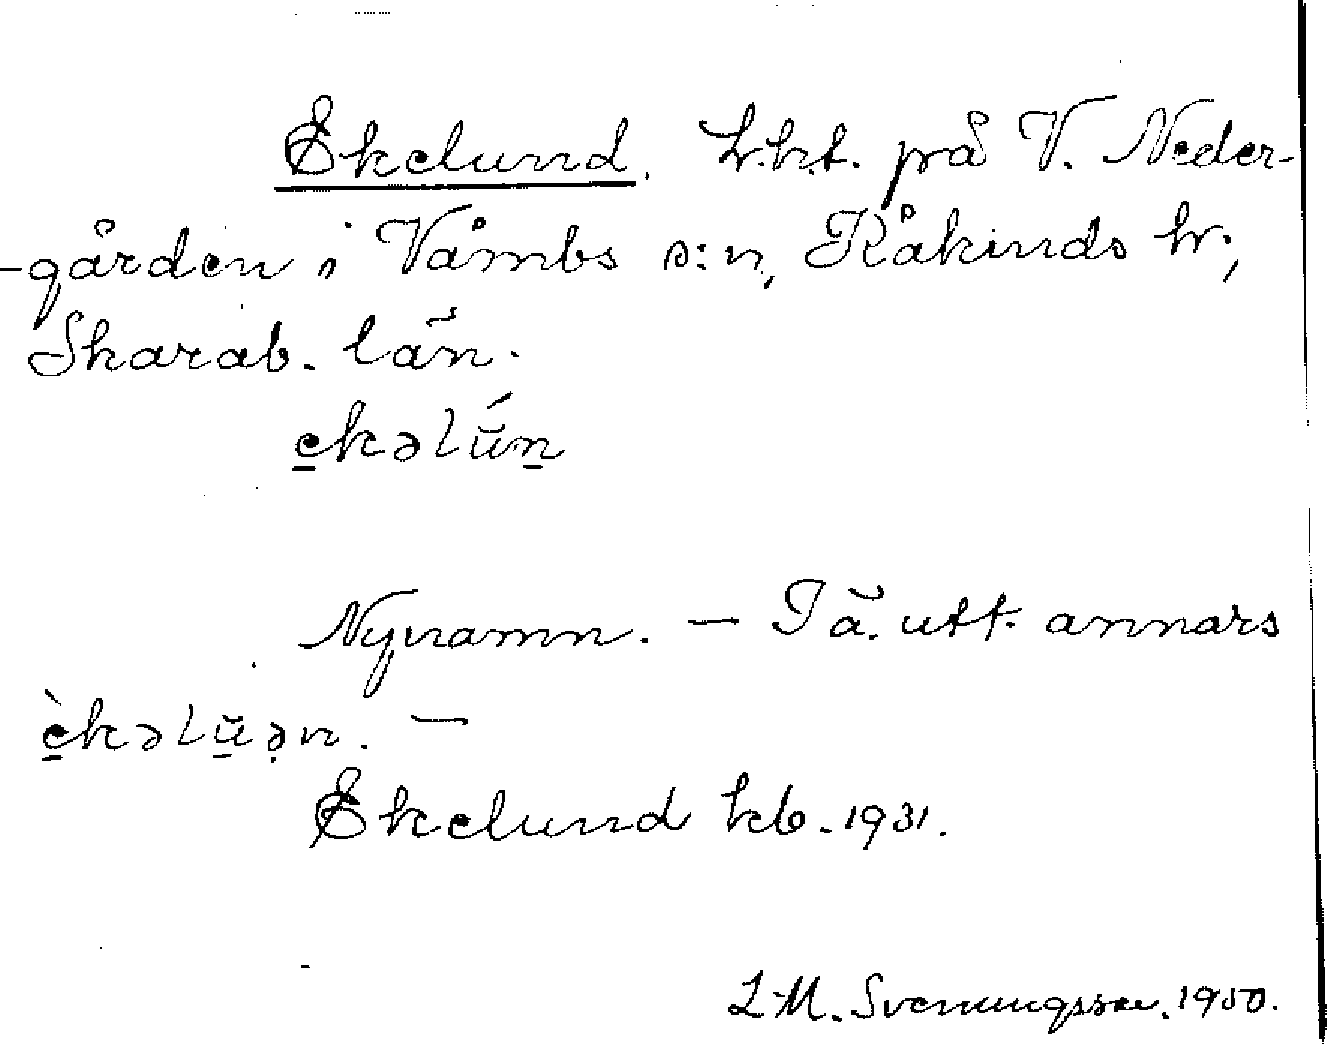 Ekelund. Lht. på V. Neder-
-gården i Våmbs s:n, Kåkinds hr,
Skarab. län.
e̱kəlū́ṉ
Nynamn. – Tä. utt. annars
è̱kəlū̱ə̣n. –
Ekelund kb. 1931.
L-M. Svenungsson. 1950.